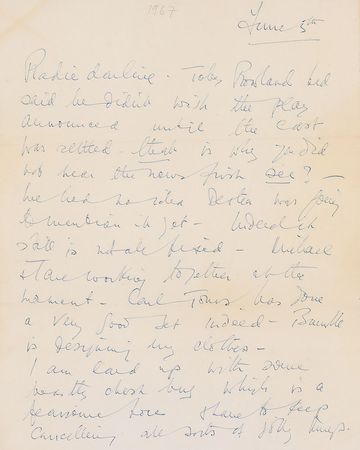 1967
June 5th
Radie darling - Toby Rowland had
said he didn't wish the play
announced until the cast
was settled - that is why you did
not hear the news first see? -
we had no idea Dexter was going
to mention it yet - Indeed it
still is not all fixed - Michael
& I are working together at the
moment - Carl Toms has done
a very good set indeed -
is designing my clothes -
I am laid up with some
beastly chest bug which is a
fearsome bore & have to keep
cancelling all sorts of jolly things.